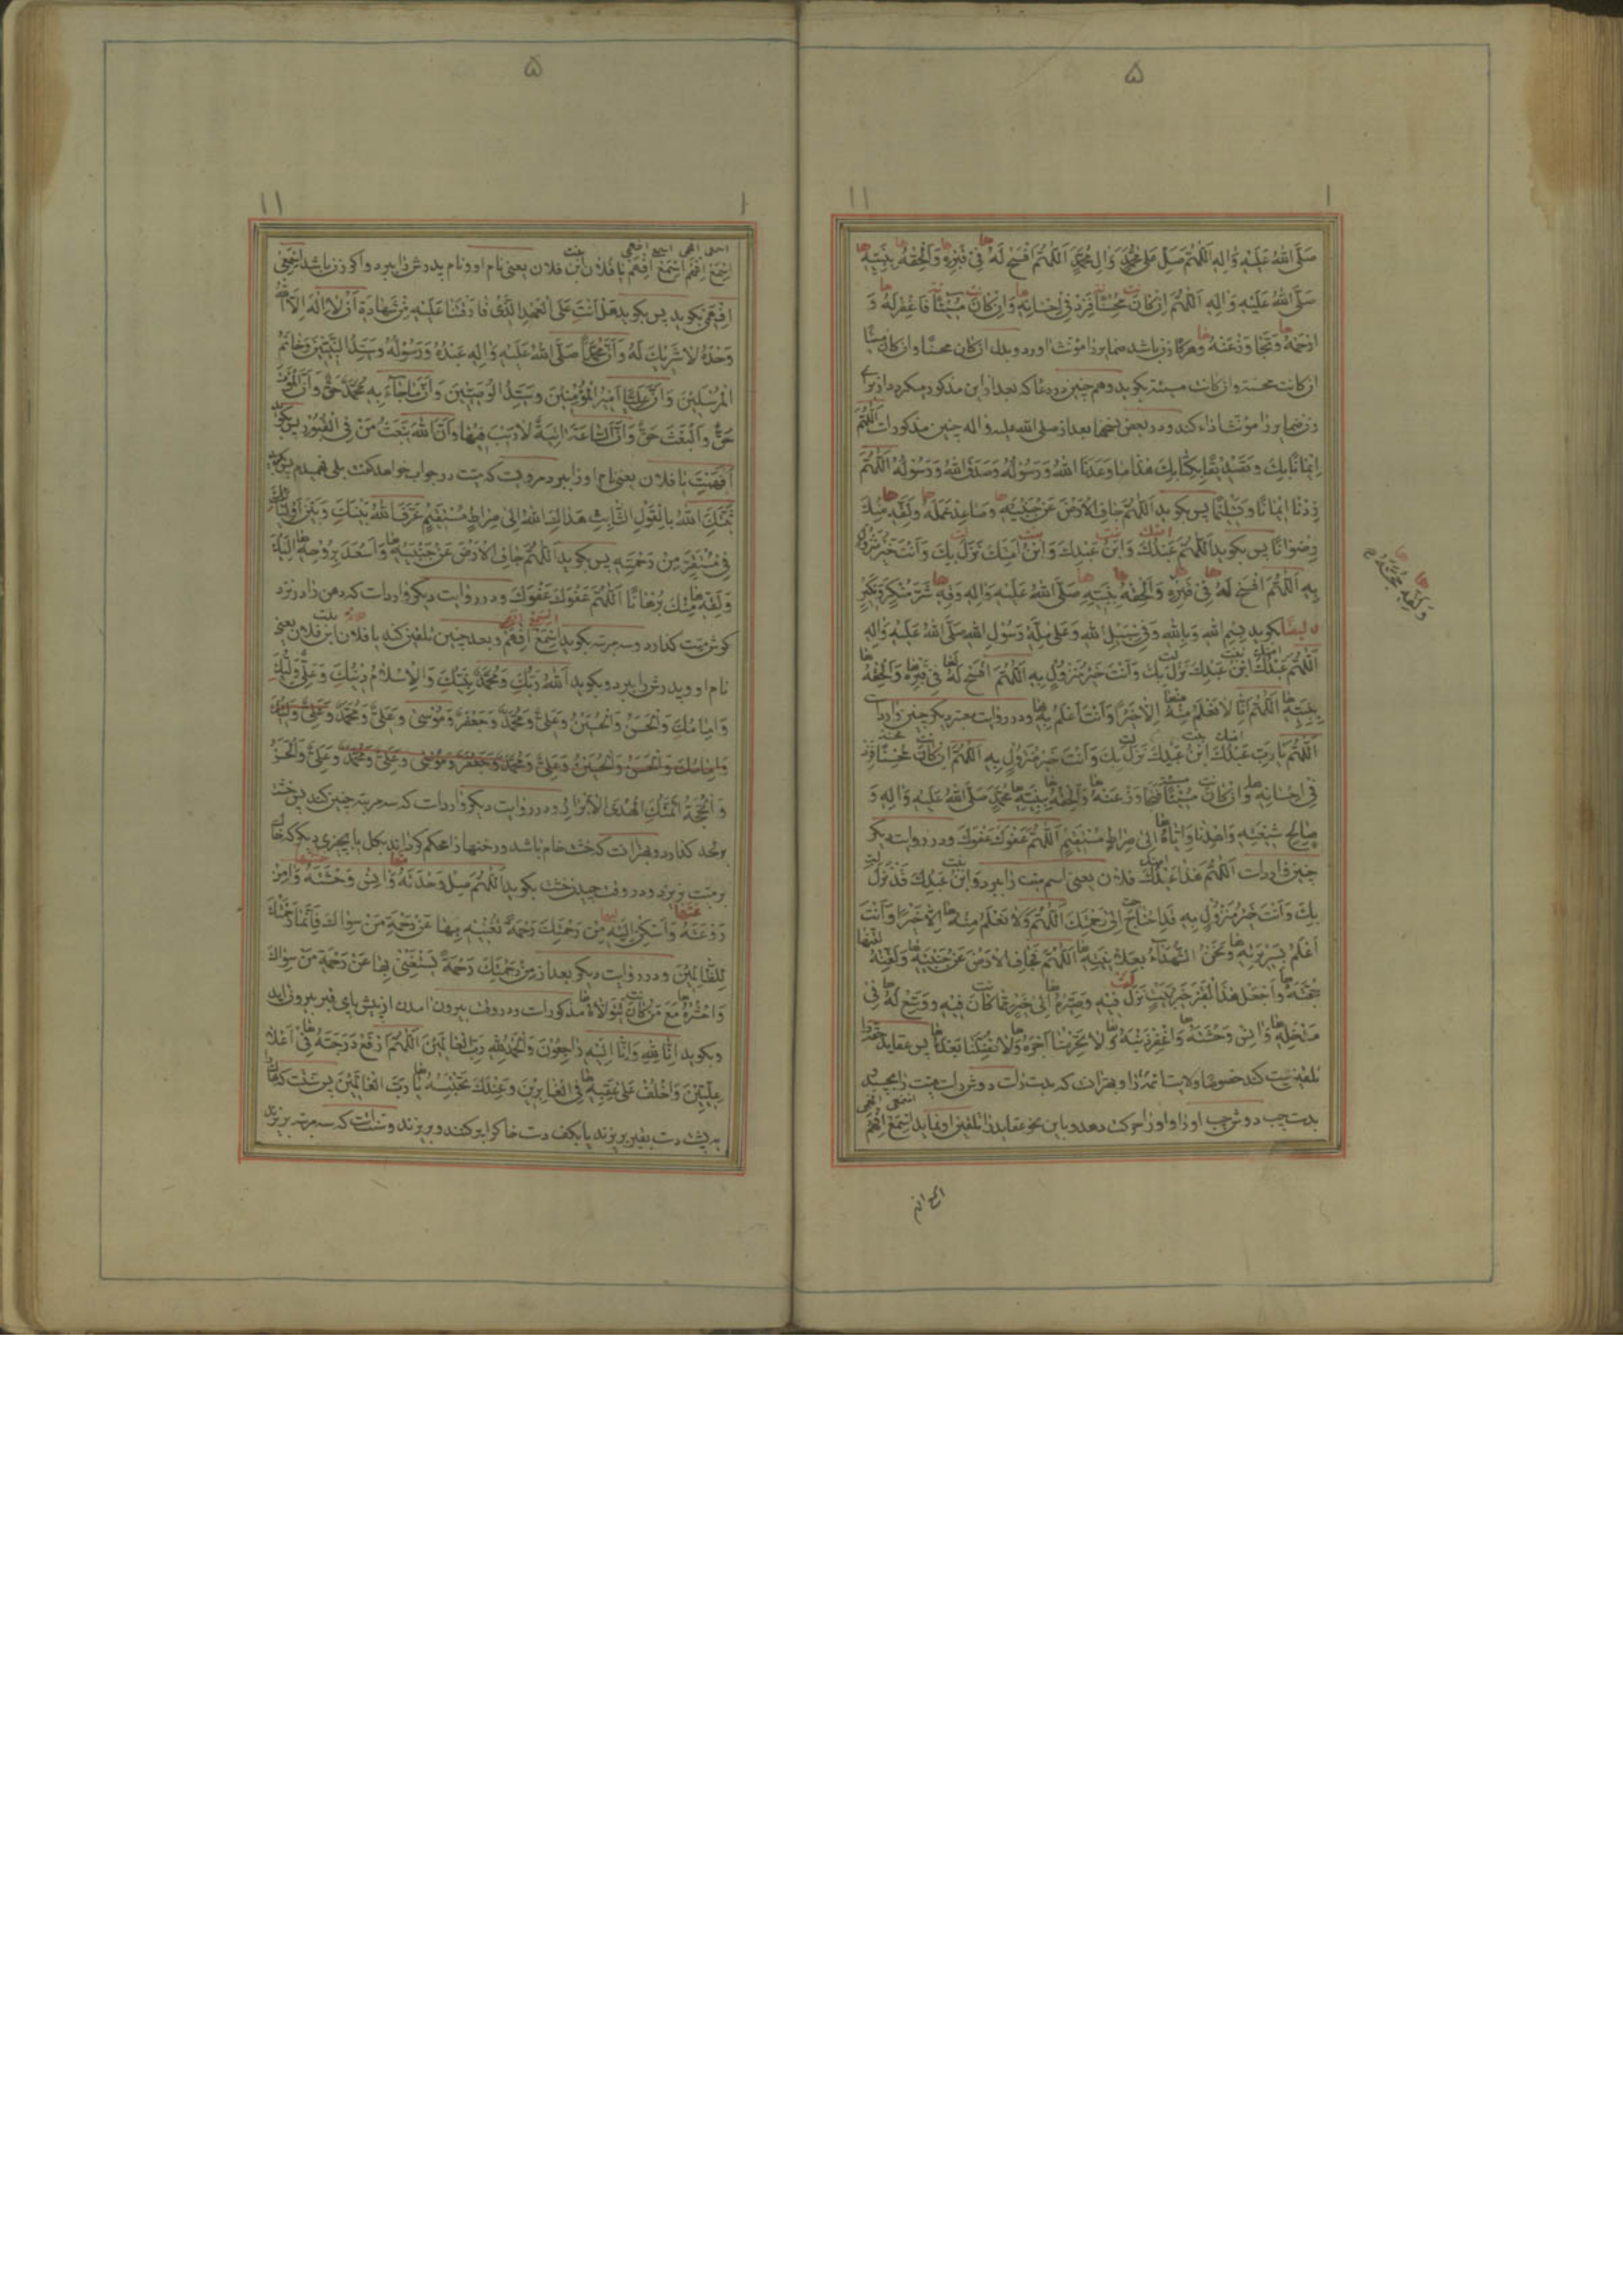 ۵
۱۱ ۱
صَلَّى اللهُ عَلَيْهِ وَاٰلِهِ اَللّٰهُمَّ صَلِّ عَلىٰ مُحَمَّدٍ وَاٰلِ مُحَمَّدٍ اَللّٰهُمَّ افْسَحْ لَهُ فِي قَبْرِهِ وَاَلْحِقْهُ بِنَبِيِّهِ
صَلَّى اللهُ عَلَيْهِ وَاٰلِهِ اَللّٰهُمَّ اِنْ كَانَ مُحْسِنًا فَزِدْ فِي اِحْسَانِهِ وَاِنْ كَانَ مُسِيْئًا فَاغْفِرْ لَهُ وَ
ارْحَمْهُ وَتَجَاوَزْ عَنْهُ وهركاه زن باشد ضمايررا مؤنث اورد وبدل ان كان محسنًا وان كان مسيئًا
ان كانت محسنة وان كانت مسيئة بكويد وهم چنين در دعا كه بعد از اين مذكور ميكردد از براى
زن ضمايررا مؤنث اداء كند ودر بعض نسخها بعد از صلى الله عليه واله چنين مذكور است اَللّٰهُمَّ
اِيْمَانًا بِكَ وَتَصْدِيْقًا بِكِتَابِكَ هٰذَا مَا وَعَدَنَا اللهُ وَرَسُوْلُهُ وَصَدَقَ اللهُ وَرَسُوْلُهُ اَللّٰهُمَّ
زِدْنَا اِيْمَانًا وَتَسْلِيْمًا پس بكويد اَللّٰهُمَّ جَافِ الْاَرْضَ عَنْ جَنْبَيْهِ وَصَاعِدْ عَمَلَهُ وَلَقِّهِ مِنْكَ
رِضْوَانًا پس بكويد اَللّٰهُمَّ عَبْدُكَ وَابْنُ عَبْدِكَ وَابْنُ اَمَتِكَ نَزَلَ بِكَ وَاَنْتَ خَيْرُ مَنْزُوْلٍ
بِهِ اَللّٰهُمَّ افْسَحْ لَهُ فِي قَبْرِهِ وَاَلْحِقْهُ بِنَبِيِّهِ صَلَّى اللهُ عَلَيْهِ وَاٰلِهِ وَقِهِ شَرَّ مُنْكَرٍ وَنَكِيْرٍ
و ايضًا بكويد بِسْمِ اللهِ وَبِاللهِ وَفِي سَبِيْلِ اللهِ وَعَلىٰ مِلَّةِ رَسُوْلِ اللهِ صَلَّى اللهُ عَلَيْهِ وَاٰلِهِ
اَللّٰهُمَّ عَبْدُكَ ابْنُ عَبْدِكَ نَزَلَ بِكَ وَاَنْتَ خَيْرُ مَنْزُوْلٍ بِهِ اَللّٰهُمَّ افْسَحْ لَهُ فِي قَبْرِهِ وَاَلْحِقْهُ
بِنَبِيِّهِ اَللّٰهُمَّ اِنَّا لَا نَعْلَمُ مِنْهُ اِلَّا خَيْرًا وَاَنْتَ اَعْلَمُ بِهِ ودر روايت معتبر ديكر چنين وارد است
اَللّٰهُمَّ يَا رَبِّ عَبْدُكَ ابْنُ عَبْدِكَ نَزَلَ بِكَ وَاَنْتَ خَيْرُ مَنْزُوْلٍ بِهِ اَللّٰهُمَّ اِنْ كَانَ مُحْسِنًا فَزِدْ
فِي اِحْسَانِهِ وَاِنْ كَانَ مُسِيْئًا فَتَجَاوَزْ عَنْهُ وَاَلْحِقْهُ بِنَبِيِّهِ مُحَمَّدٍ صَلَّى اللهُ عَلَيْهِ وَاٰلِهِ وَ
صَالِحِ شِيْعَتِهِ وَاهْدِنَا وَاِيَّاهُ اِلىٰ صِرَاطٍ مُسْتَقِيْمٍ اَللّٰهُمَّ عَفْوَكَ عَفْوَكَ ودر روايت ديكر
چنين وارد است اَللّٰهُمَّ هٰذَا عَبْدُكَ فلان يعنى اسم ميت را ببرد وَابْنُ عَبْدِكَ قَدْ نَزَلَ
بِكَ وَاَنْتَ خَيْرُ مَنْزُوْلٍ بِهِ قَدِ احْتَاجَ اِلىٰ رَحْمَتِكَ اَللّٰهُمَّ وَلَا نَعْلَمُ مِنْهُ اِلَّا خَيْرًا وَاَنْتَ
اَعْلَمُ بِسَرِيْرَتِهِ وَنَحْنُ الشُّهَدَاءُ بِعَلَانِيَتِهِ اَللّٰهُمَّ فَجَافِ الْاَرْضَ عَنْ جَنْبَيْهِ وَلَقِّنْهُ
حُجَّتَهُ وَاجْعَلْ هٰذَا الْقَبْرَ خَيْرَ بَيْتٍ نَزَلَ فِيْهِ وَصَيِّرْهُ اِلىٰ خَيْرٍ مِمَّا كَانَ فِيْهِ وَوَسِّعْ لَهُ فِي
مَدْخَلِهِ وَاٰنِسْ وَحْشَتَهُ وَاغْفِرْ ذَنْبَهُ وَلَا تَحْرِمْنَا اَجْرَهُ وَلَا تُضِلَّنَا بَعْدَهُ پس عقايد حقه را
تلقين ميت كند خصوصًا ولايت ائمه را وبهتر انست كه بدست راست دوش راست ميت را بچسبد
بدست چپ دوش چپ او را واو را حركت دهد وباين نحو عقايد را تلقين او نمايد اِسْمَعْ اِفْهَمْ
اسمع افهم
۵
۱۱ ۱
اِسْمَعْ اِفْهَمْ اِسْمَعْ اِفْهَمْ يا فلان ابن فلان يعنى نام او ونام پدرش را ببرد واكر زن باشد اِسْمَعِي
اِفْهَمِي بكويد پس بكويد هَلْ اَنْتَ عَلَى الْعَهْدِ الَّذِي فَارَقْتَنَا عَلَيْهِ مِنْ شَهَادَةِ اَنْ لَا اِلٰهَ اِلَّا اللهُ
وَحْدَهُ لَا شَرِيْكَ لَهُ وَاَنَّ مُحَمَّدًا صَلَّى اللهُ عَلَيْهِ وَاٰلِهِ عَبْدُهُ وَرَسُوْلُهُ وَسَيِّدُ النَّبِيِّيْنَ وَخَاتَمُ
الْمُرْسَلِيْنَ وَاَنَّ عَلِيًّا اَمِيْرُ الْمُؤْمِنِيْنَ وَسَيِّدُ الْوَصِيِّيْنَ وَاَنَّ مَا جَاءَ بِهِ مُحَمَّدٌ حَقٌّ وَاَنَّ الْمَوْتَ
حَقٌّ وَالْبَعْثَ حَقٌّ وَاَنَّ السَّاعَةَ اٰتِيَةٌ لَا رَيْبَ فِيْهَا وَاَنَّ اللهَ يَبْعَثُ مَنْ فِي الْقُبُوْرِ پس بكويد
اَفَهِمْتَ يا فلان يعنى نام او را ببرد مرويست كه ميت در جواب خواهد كفت بلى فهميدم پس بكويد
ثَبَّتَكَ اللهُ بِالْقَوْلِ الثَّابِتِ هَدَاكَ اللهُ اِلىٰ صِرَاطٍ مُسْتَقِيْمٍ عَرَّفَ اللهُ بَيْنَكَ وَبَيْنَ اَوْلِيَائِكَ
فِي مُسْتَقَرٍّ مِنْ رَحْمَتِهِ پس بكويد اَللّٰهُمَّ جَافِ الْاَرْضَ عَنْ جَنْبَيْهِ وَاصْعَدْ بِرُوْحِهِ اِلَيْكَ
وَلَقِّهِ مِنْكَ بُرْهَانًا اَللّٰهُمَّ عَفْوَكَ عَفْوَكَ ودر روايت ديكر وارد است كه دهن را در نزد
كوش ميت كذارد وسه مرتبه بكويد اِسْمَعْ اِفْهَمْ وبعد چنين تلقين كند يا فلان ابن فلان يعنى
نام او وپدرش را ببرد وبكويد اَللهُ رَبُّكَ وَمُحَمَّدٌ نَبِيُّكَ وَالْاِسْلَامُ دِيْنُكَ وَعَلِيٌّ وَلِيُّكَ
وَاِمَامُكَ وَالْحَسَنُ وَالْحُسَيْنُ وَعَلِيٌّ وَمُحَمَّدٌ وَجَعْفَرٌ وَمُوْسىٰ وَعَلِيٌّ وَمُحَمَّدٌ وَعَلِيٌّ
وَاِمَامُكَ وَالْحَسَنُ وَالْحُسَيْنُ وَعَلِيٌّ وَمُحَمَّدٌ وَجَعْفَرٌ وَمُوْسىٰ وَعَلِيٌّ وَمُحَمَّدٌ وَعَلِيٌّ وَالْحَسَنُ
وَالْحُجَّةُ اَئِمَّتُكَ الْهُدَى الْاَبْرَارُ ودر روايت ديكر وارد است كه سه مرتبه چنين كند پس خشت
بر لحد كذارد وبهتر انست كه خشت خام باشد ورخنها را محكم كرداند بكل يا بچيزى ديكر كه خاك
بر ميت نريزد ودر وقت چيدن خشت بكويد اَللّٰهُمَّ صِلْ وَحْدَتَهُ وَاٰنِسْ وَحْشَتَهُ وَاٰمِنْ
رَوْعَتَهُ وَاَسْكِنْ اِلَيْهِ مِنْ رَحْمَتِكَ رَحْمَةً تُغْنِيْهِ بِهَا عَنْ رَحْمَةِ مَنْ سِوَاكَ فَاِنَّمَا رَحْمَتُكَ
لِلظَّالِمِيْنَ ودر روايت ديكر بعد از مِنْ رَحْمَتِكَ رَحْمَةً يَسْتَغْنِي بِهَا عَنْ رَحْمَةِ مَنْ سِوَاكَ
وَاحْشُرْهُ مَعَ مَنْ كَانَ يَتَوَلَّاهُ مذكور است ودر وقت بيرون امدن از پيش پاى قبر بيرون ايد
وبكويد اِنَّا لِلّٰهِ وَاِنَّا اِلَيْهِ رَاجِعُوْنَ وَالْحَمْدُ لِلّٰهِ رَبِّ الْعَالَمِيْنَ اَللّٰهُمَّ ارْفَعْ دَرَجَتَهُ فِي اَعْلىٰ
عِلِّيِّيْنَ وَاخْلُفْ عَلىٰ عَقِبِهِ فِي الْغَابِرِيْنَ وَعِنْدَكَ نَحْتَسِبُهُ يَا رَبَّ الْعَالَمِيْنَ پس سنت است كه
به پشت دست بقبر بريزند يا بكف دست خاك را بركنند وبريزند وسنت است كه سه مرتبه بريزند